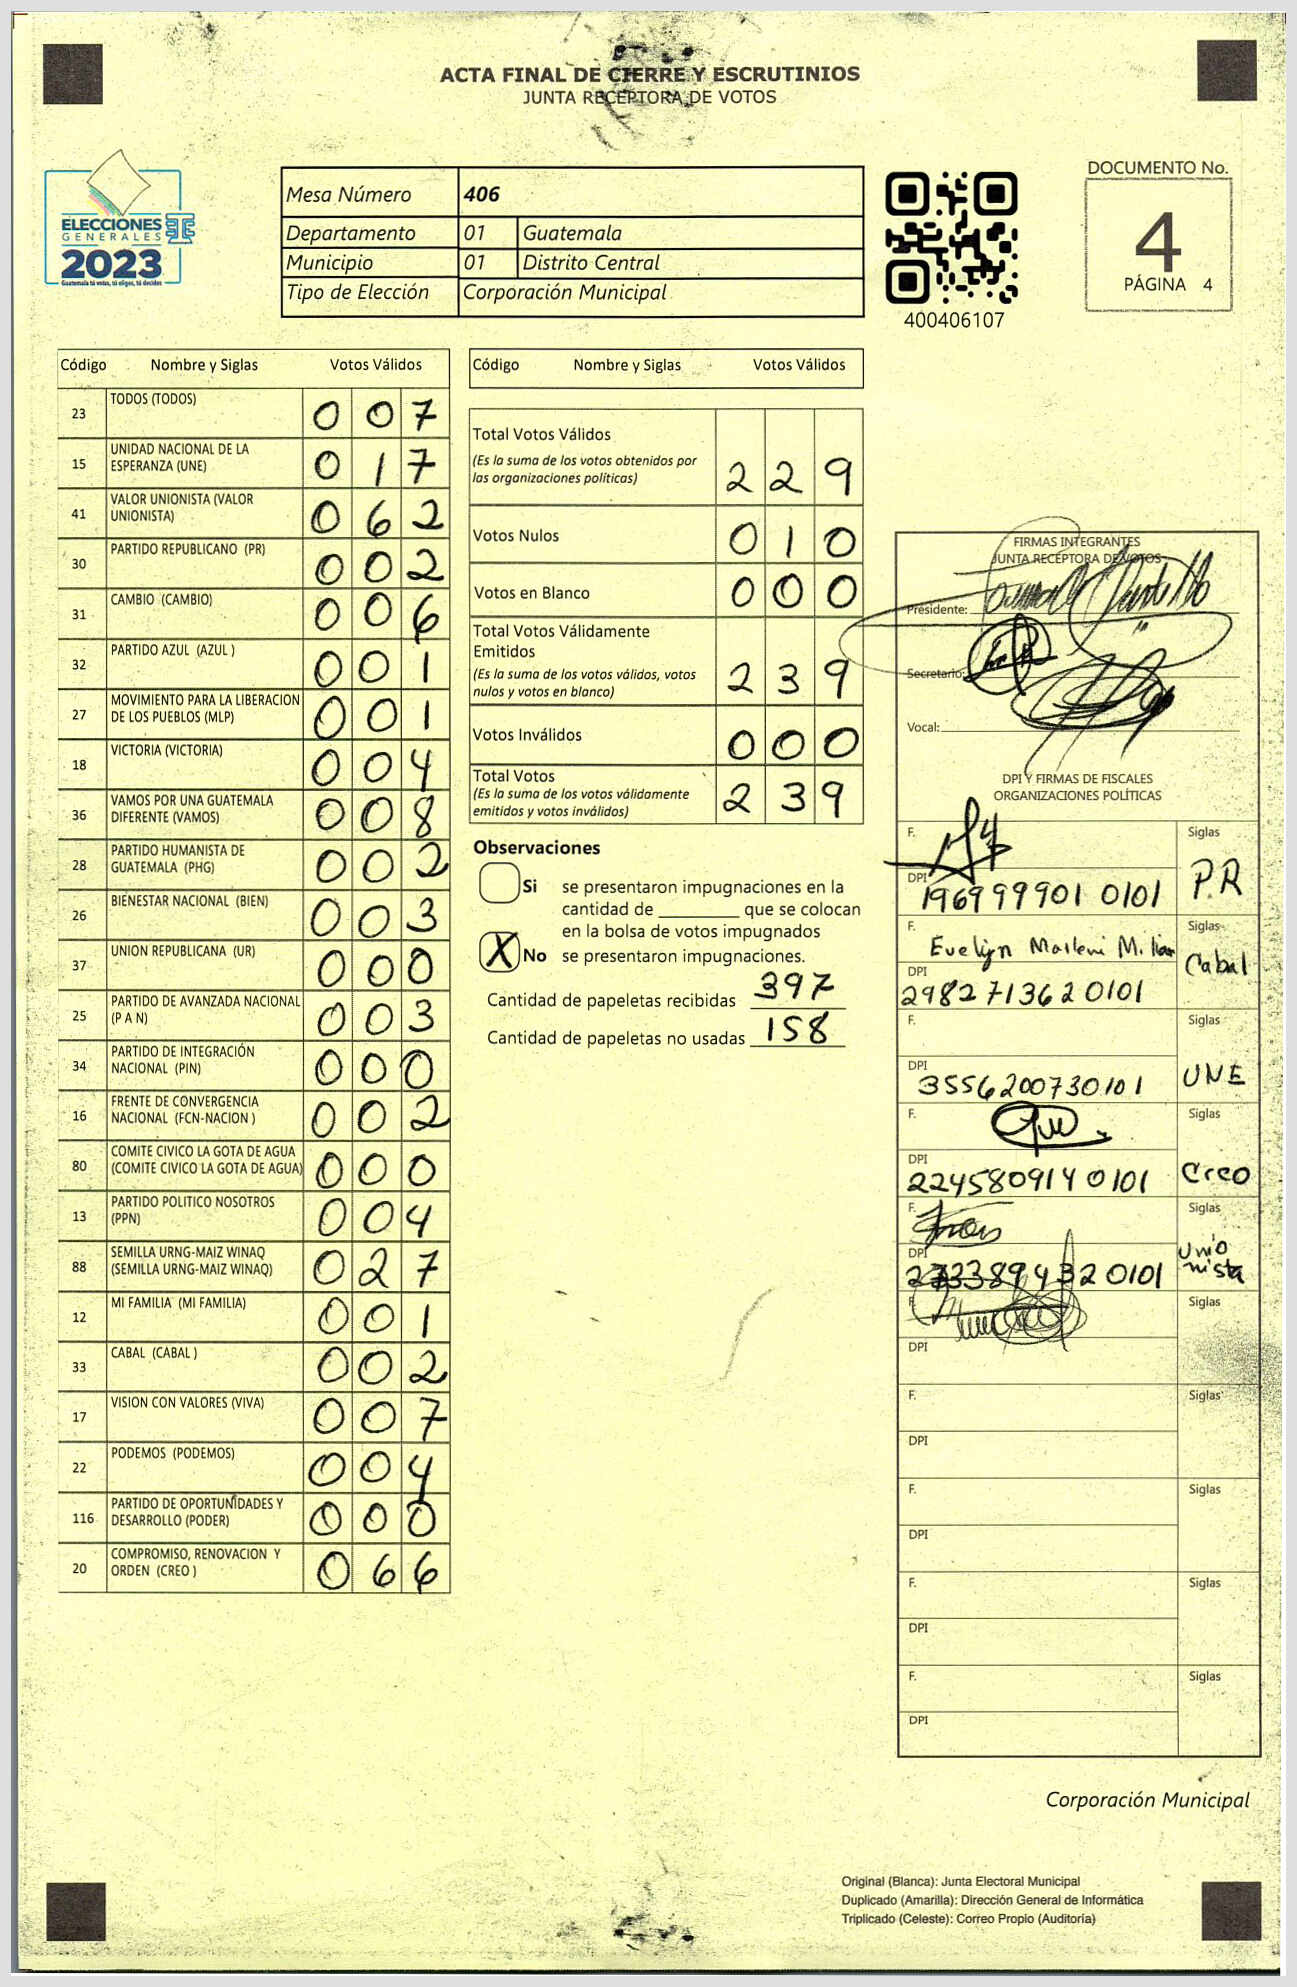 ACTA FINAL DE CIERRE Y ESCRUTINIOS
JUNTA RECEPTORA DE VOTOS
ELECCIONES
GENERALES
2023
Guatemala tú votas, tú eliges, tú decides
Mesa Número 406
Departamento 01 Guatemala
Municipio 01 Distrito Central
Tipo de Elección Corporación Municipal
400406107
DOCUMENTO No.
4
PÁGINA 4
Código Nombre y Siglas Votos Válidos
23 TODOS (TODOS) 0 0 7
15 UNIDAD NACIONAL DE LA ESPERANZA (UNE) 0 1 7
41 VALOR UNIONISTA (VALOR UNIONISTA) 0 6 2
30 PARTIDO REPUBLICANO (PR) 0 0 2
31 CAMBIO (CAMBIO) 0 0 6
32 PARTIDO AZUL (AZUL ) 0 0 1
27 MOVIMIENTO PARA LA LIBERACION DE LOS PUEBLOS (MLP) 0 0 1
18 VICTORIA (VICTORIA) 0 0 4
36 VAMOS POR UNA GUATEMALA DIFERENTE (VAMOS) 0 0 8
28 PARTIDO HUMANISTA DE GUATEMALA (PHG) 0 0 2
26 BIENESTAR NACIONAL (BIEN) 0 0 3
37 UNION REPUBLICANA (UR) 0 0 0
25 PARTIDO DE AVANZADA NACIONAL (P A N) 0 0 3
34 PARTIDO DE INTEGRACIÓN NACIONAL (PIN) 0 0 0
16 FRENTE DE CONVERGENCIA NACIONAL (FCN-NACION ) 0 0 2
80 COMITE CIVICO LA GOTA DE AGUA (COMITE CIVICO LA GOTA DE AGUA) 0 0 0
13 PARTIDO POLITICO NOSOTROS (PPN) 0 0 4
88 SEMILLA URNG-MAIZ WINAQ (SEMILLA URNG-MAIZ WINAQ) 0 2 7
12 MI FAMILIA (MI FAMILIA) 0 0 1
33 CABAL (CABAL ) 0 0 2
17 VISION CON VALORES (VIVA) 0 0 7
22 PODEMOS (PODEMOS) 0 0 4
116 PARTIDO DE OPORTUNIDADES Y DESARROLLO (PODER) 0 0 0
20 COMPROMISO, RENOVACION Y ORDEN (CREO ) 0 6 6
Código Nombre y Siglas Votos Válidos
Total Votos Válidos
(Es la suma de los votos obtenidos por
las organizaciones políticas) 2 2 9
Votos Nulos 0 1 0
Votos en Blanco 0 0 0
Total Votos Válidamente
Emitidos
(Es la suma de los votos válidos, votos
nulos y votos en blanco) 2 3 9
Votos Inválidos 0 0 0
Total Votos
(Es la suma de los votos válidamente
emitidos y votos inválidos) 2 3 9
Observaciones
Si se presentaron impugnaciones en la
cantidad de ________ que se colocan
en la bolsa de votos impugnados
X No se presentaron impugnaciones.
Cantidad de papeletas recibidas 397
Cantidad de papeletas no usadas 158
FIRMAS INTEGRANTES
JUNTA RECEPTORA DE VOTOS
Presidente:
Secretario:
Vocal:
DPI Y FIRMAS DE FISCALES
ORGANIZACIONES POLÍTICAS
F. Siglas
DPI 196999901 0101 P.R
F. Evelyn Marleni Milian Siglas
DPI 2982713620101 Cabal
F. Siglas
DPI 3556200730101 UNE
F. Siglas
DPI 2245809140101 Creo
F. Siglas
DPI 2733894320101 Unionista
F. Siglas
DPI
F. Siglas
DPI
F. Siglas
DPI
F. Siglas
DPI
F. Siglas
DPI
Corporación Municipal
Original (Blanca): Junta Electoral Municipal
Duplicado (Amarilla): Dirección General de Informática
Triplicado (Celeste): Correo Propio (Auditoría)